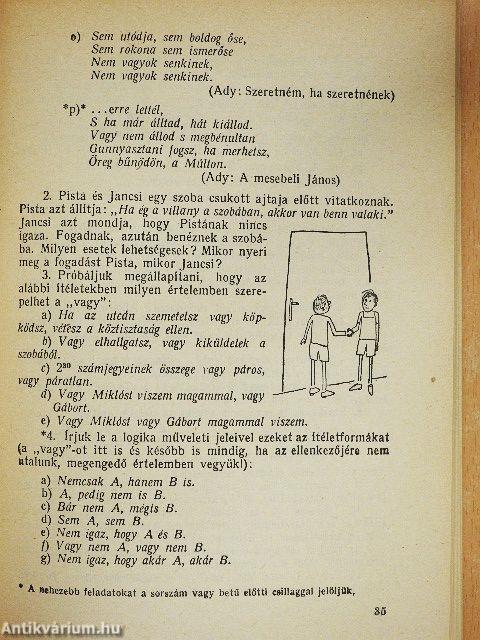 o) Sem utódja, sem boldog őse,
Sem rokona sem ismerőse
Nem vagyok senkinek,
Nem vagyok senkinek.
(Ady: Szeretném, ha szeretnének)
*p)* ...erre lettél,
S ha már álltad, hát kiállod.
Vagy nem állod s megbénultan
Gunnyasztani fogsz, ha merhetsz,
Öreg bűnödön, a Múlton.
(Ady: A mesebeli János)
2. Pista és Jancsi egy szoba csukott ajtaja előtt vitatkoznak.
Pista azt állítja: „Ha ég a villany a szobában, akkor van benn valaki."
Jancsi azt mondja, hogy Pistának nincs
igaza. Fogadnak, azután benéznek a szobá-
ba. Milyen esetek lehetségesek? Mikor nyeri
meg a fogadást Pista, mikor Jancsi?
3. Próbáljuk megállapítani, hogy az
alábbi ítéletekben milyen értelemben szere-
pelhet a „vagy":
a) Ha az utcán szemetelsz vagy köp-
ködsz, vétesz a köztisztaság ellen.
b) Vagy elhallgatsz, vagy kiküldelek a
szobából.
c) 2³⁰ számjegyeinek összege vagy páros,
vagy páratlan.
d) Vagy Miklóst viszem magammal, vagy
Gábort.
e) Vagy Miklóst vagy Gábort magammal viszem.
*4. Írjuk le a logika műveleti jeleivel ezeket az ítéletformákat
(a „vagy"-ot itt is és később is mindig, ha az ellenkezőjére nem
utalunk, megengedő értelemben vegyük!):
a) Nemcsak A, hanem B is.
b) A, pedig nem is B.
c) Bár nem A, mégis B.
d) Sem A, sem B.
e) Nem igaz, hogy A és B.
f) Vagy nem A, vagy nem B.
g) Nem igaz, hogy akár A, akár B.
* A nehezebb feladatokat a sorszám vagy betű előtti csillaggal jelöljük,
35
Antikvárium.hu